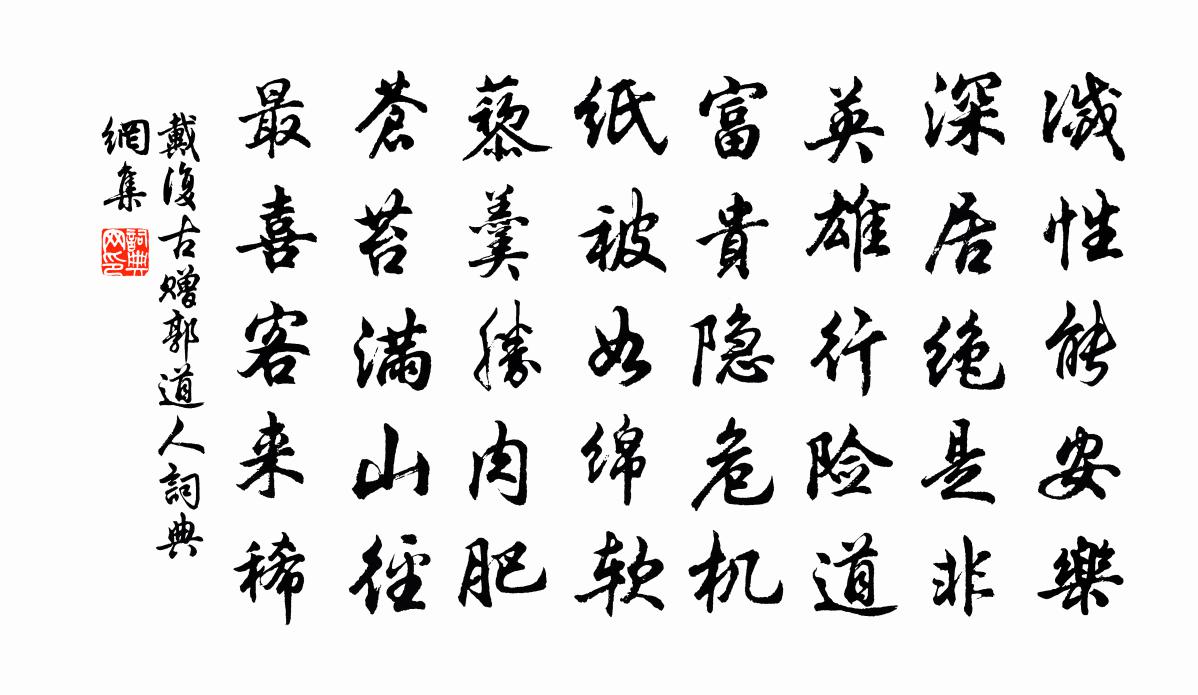 識性能安樂
深居绝是非
英雄行险道
富貴隐危机
纸被如绵软
藜羹勝肉肥
蒼苔满山徑
最喜客来稀
戴復古赠郭道人詞典
網集
詞典
网印